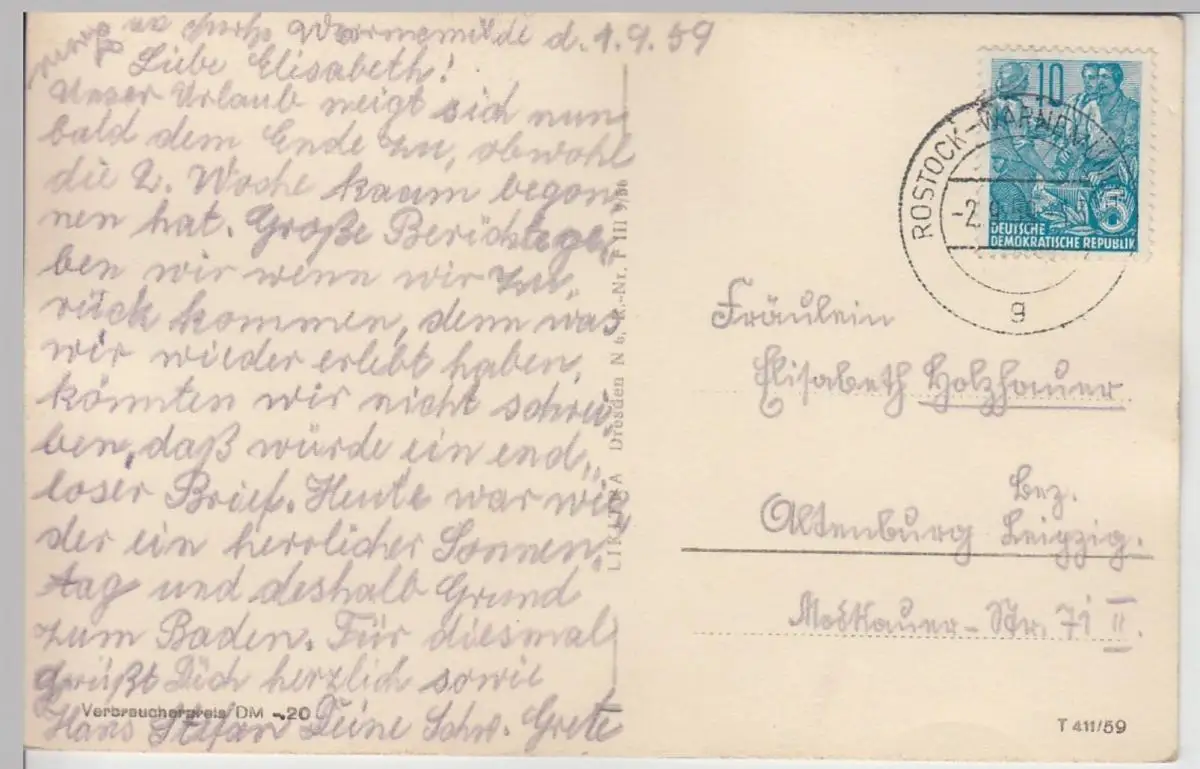 Warnemünde d. 1.9.59
Liebe Elisabeth!
Unser Urlaub neigt sich nun
bald dem Ende zu, obwohl
die 2. Woche kaum begon-
nen hat. Große Berichte ge-
ben wir wenn wir zu-
rück kommen, denn was
wir wieder erlebt haben,
könnten wir nicht schrei-
ben, daß würde ein end-
loser Brief. Heute war wie-
der ein herrlicher Sonnen-
tag und deshalb Grund
zum Baden. Für diesmal
grüßt Dich herzlich sowie
Hans Stefan Deine Schw. Grete
Verbraucherpreis DM -.20
Dresden N 6, R.-Nr.
10
5
DEUTSCHE
DEMOKRATISCHE REPUBLIK
ROSTOCK-WARNEMÜ
-2.9.
g
Fräulein
Elisabeth Holzhauer
Altenburg Bez. Leipzig.
Moskauer-Str. 71 II.
T 411/59